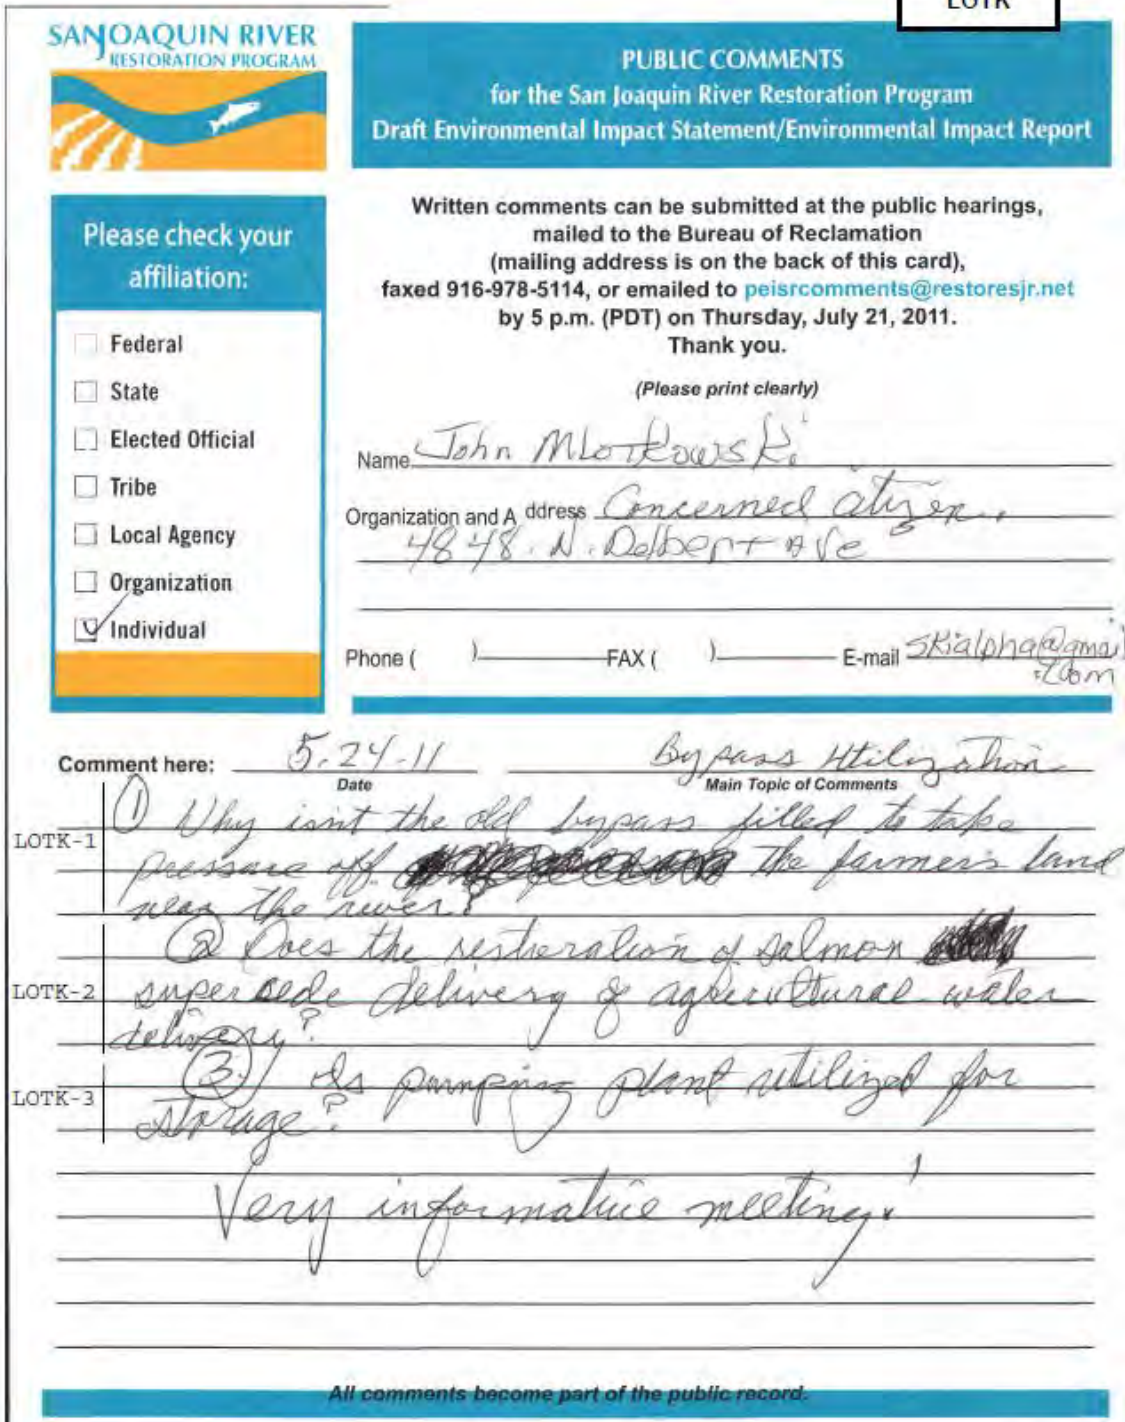 LOTK
SAN JOAQUIN RIVER
RESTORATION PROGRAM
PUBLIC COMMENTS
for the San Joaquin River Restoration Program
Draft Environmental Impact Statement/Environmental Impact Report
Please check your
affiliation:
Federal
State
Elected Official
Tribe
Local Agency
Organization
Individual
Written comments can be submitted at the public hearings,
mailed to the Bureau of Reclamation
(mailing address is on the back of this card),
faxed 916-978-5114, or emailed to peisrcomments@restoresjr.net
by 5 p.m. (PDT) on Thursday, July 21, 2011.
Thank you.
(Please print clearly)
Name John Mlotkowski
Organization and Address Concerned citizen.
4848. N. Delbert Ave
Phone ( ) FAX ( ) E-mail skialpha@gmail
.com
Comment here: 5.24.11 Bypass Utilization
Date Main Topic of Comments
LOTK-1
① Why isn't the old bypass filled to take
pressure off the farmer's land
near the river?
LOTK-2
② Does the restieration of salmon
supercede delivery of agricultural water
delivery?
LOTK-3
③ Is pumping plant utilized for
storage?
Very informative meeting!
All comments become part of the public record.